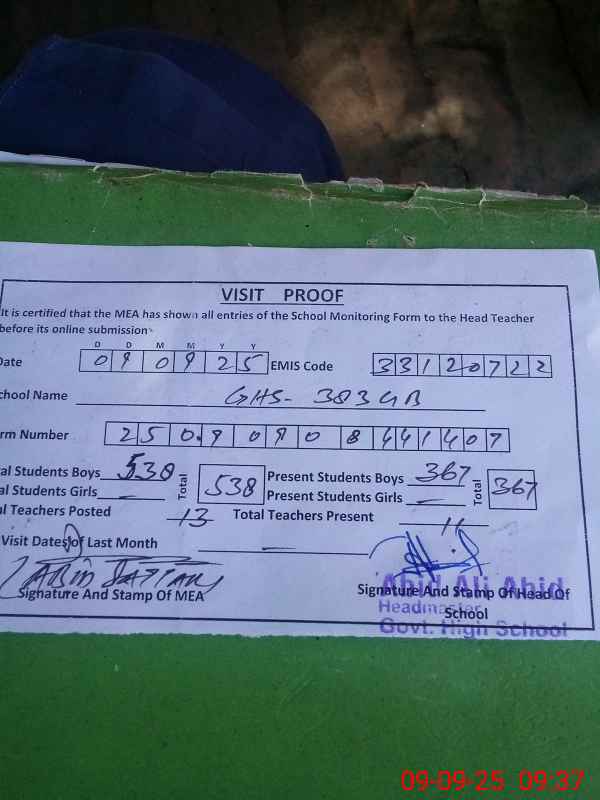 VISIT PROOF
It is certified that the MEA has shown all entries of the School Monitoring Form to the Head Teacher
before its online submission
D D M M Y Y
Date 0 9 0 9 2 5 EMIS Code 3 3 1 2 0 7 2 2
chool Name GHS- 383 GB
rm Number 2 5 0 9 0 9 0 8 4 4 1 4 0 7
al Students Boys 538 Total 538 Present Students Boys 367 Total 367
al Students Girls — Present Students Girls —
al Teachers Posted 13 Total Teachers Present 11
Visit Dates of Last Month —
Signature And Stamp Of MEA
Signature And Stamp Of Head Of
School
Abid Ali Abid
Headmaster
Govt. High School
09-09-25 09:37